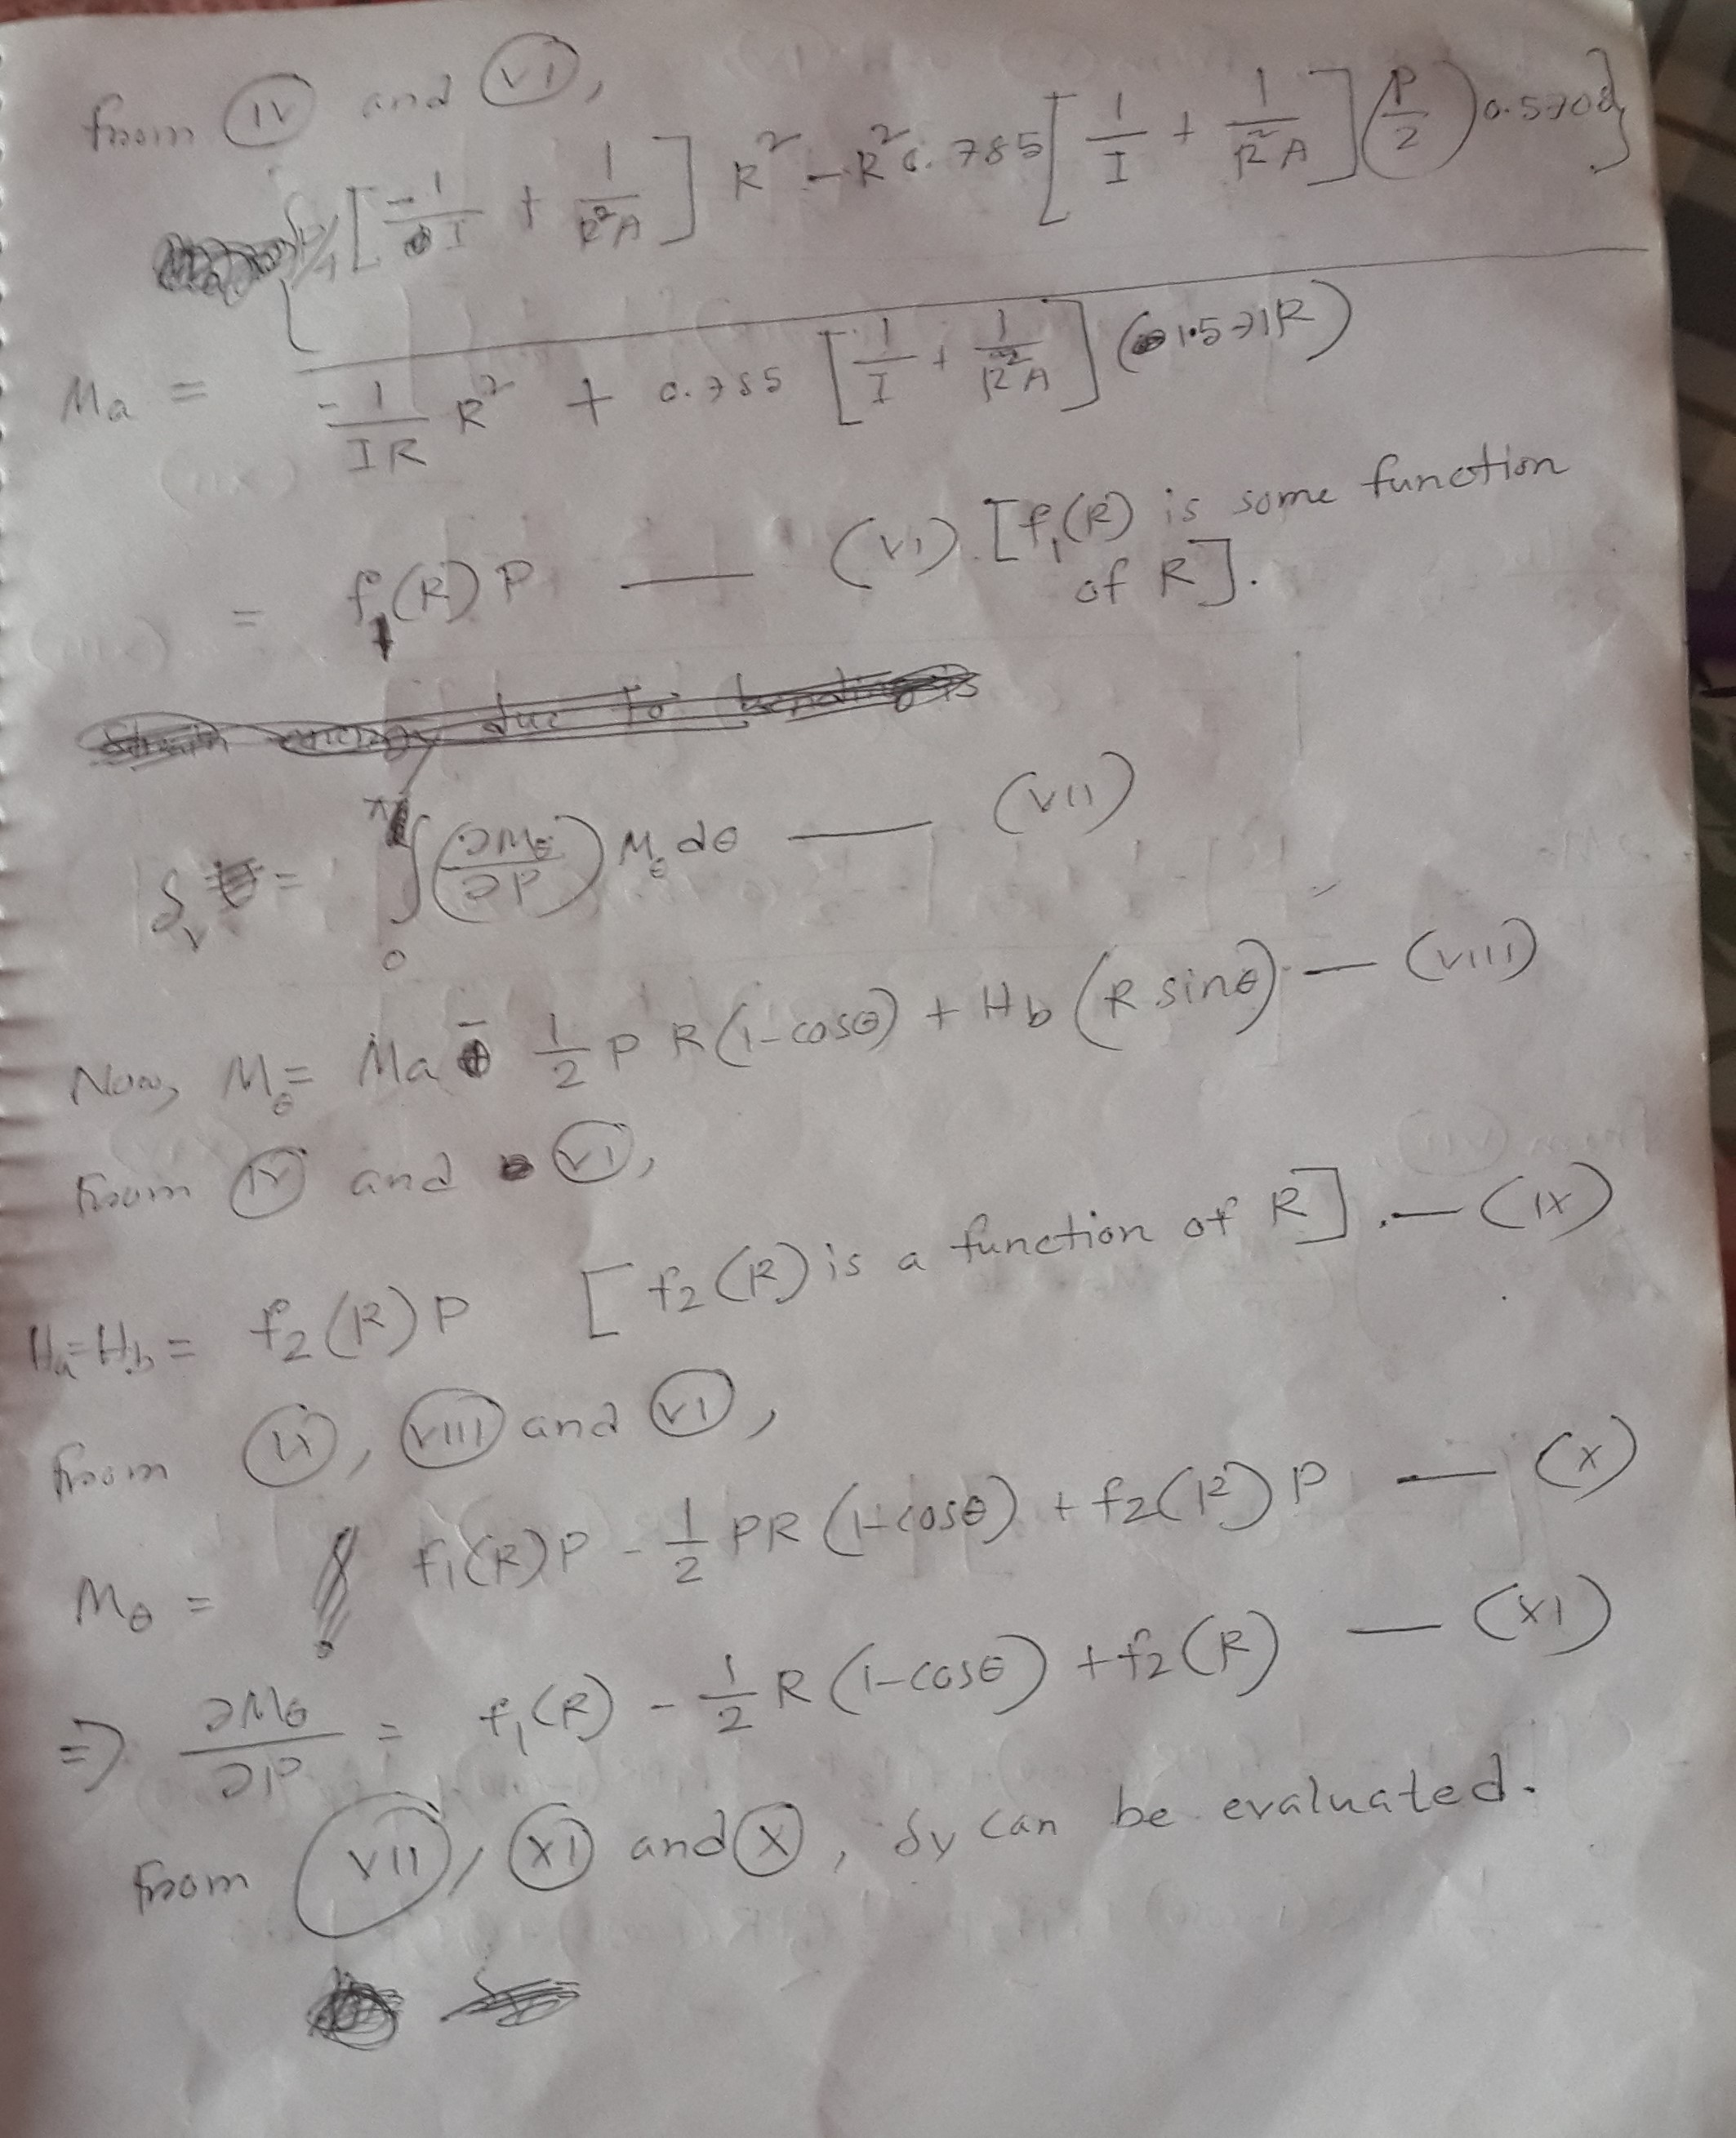 from (IV) and (VI),
{P/4 [-1/I + 1/R²A] R² - R² 0.785 [1/I + 1/R²A] (P/2) 0.5708}
Ma = ────────────────
-1/IR R² + 0.785 [1/I + 1/R²A] (1.571R)
= f₁(R) P — (VI). [f₁(R) is some function
of R].
due to bending is
δᵥ = ∫₀ (∂Mθ/∂P) Mθ dθ — (VII)
Now, Mθ = Ma - 1/2 P R(1-cosθ) + Hb (R sinθ) — (VIII)
From (IV) and (VI),
Ha=Hb = f₂(R) P [f₂(R) is a function of R]. — (IX)
from (VIII) and (VI),
Mθ = f₁(R)P - 1/2 PR (1-cosθ) + f₂(R) P — (X)
=> ∂Mθ/∂P = f₁(R) - 1/2 R (1-cosθ) + f₂(R) — (XI)
from (VII), (XI) and (X), δᵥ can be evaluated.